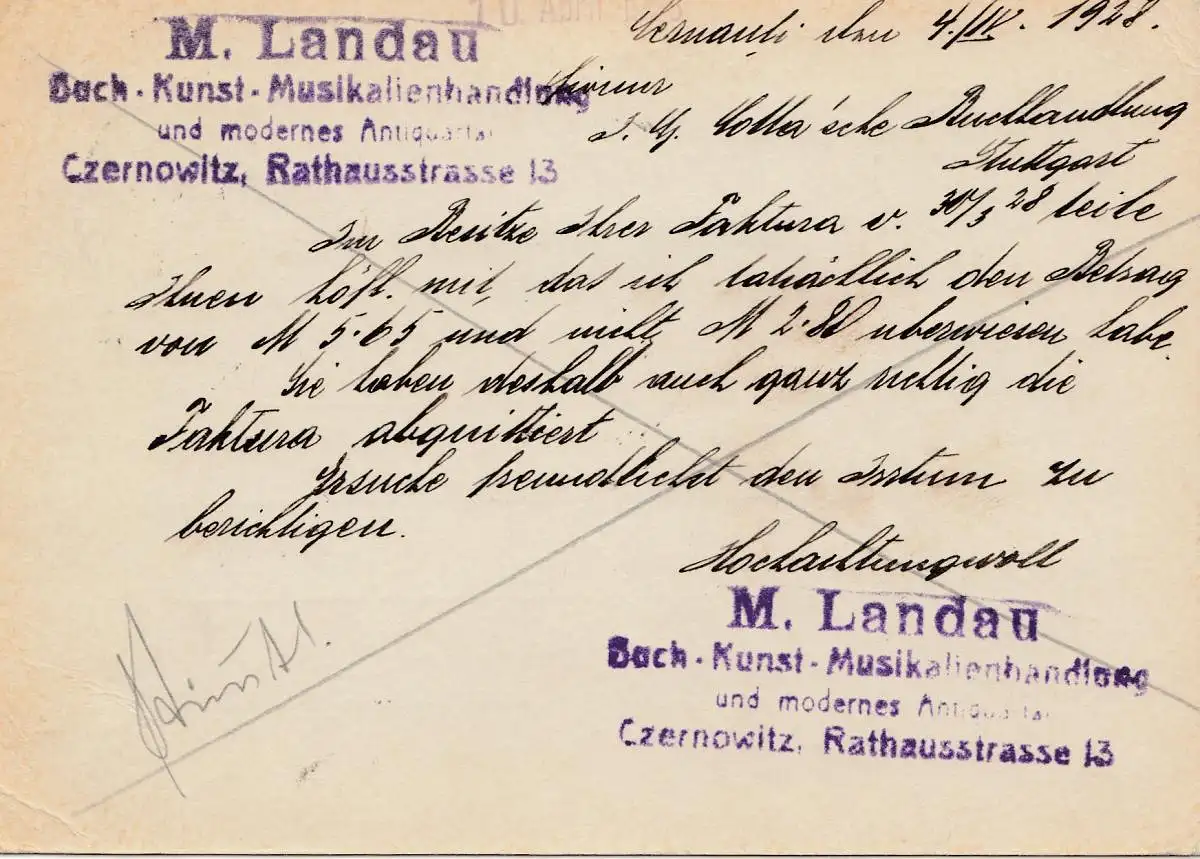 10. April 1928
Cernauti den 4./IV. 1928.
M. Landau
Buch - Kunst - Musikalienhandlung
und modernes Antiquariat
Czernowitz, Rathausstrasse 13
J. G. Cotta'sche Buchhandlung
Stuttgart
Im Besitze Ihrer Faktura v. 30/3 28 teile
Ihnen höfl. mit, das ich tatsächlich den Betrag
von M 5.65 und nicht M 2.80 überwiesen habe.
Sie haben deshalb auch ganz richtig die
Faktura abquittiert
Ersuche freundlichst den Irrtum zu
berichtigen.
Hochachtungsvoll
M. Landau
Buch - Kunst - Musikalienhandlung
und modernes Antiquariat
Czernowitz, Rathausstrasse 13